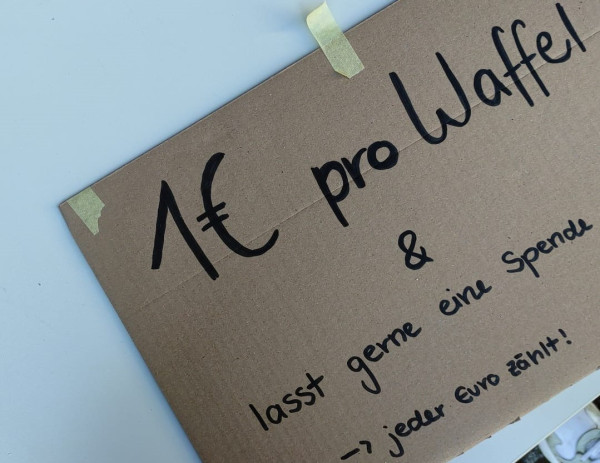 1€ pro Waffel
&
lasst gerne eine Spende
-> jeder Euro zählt!